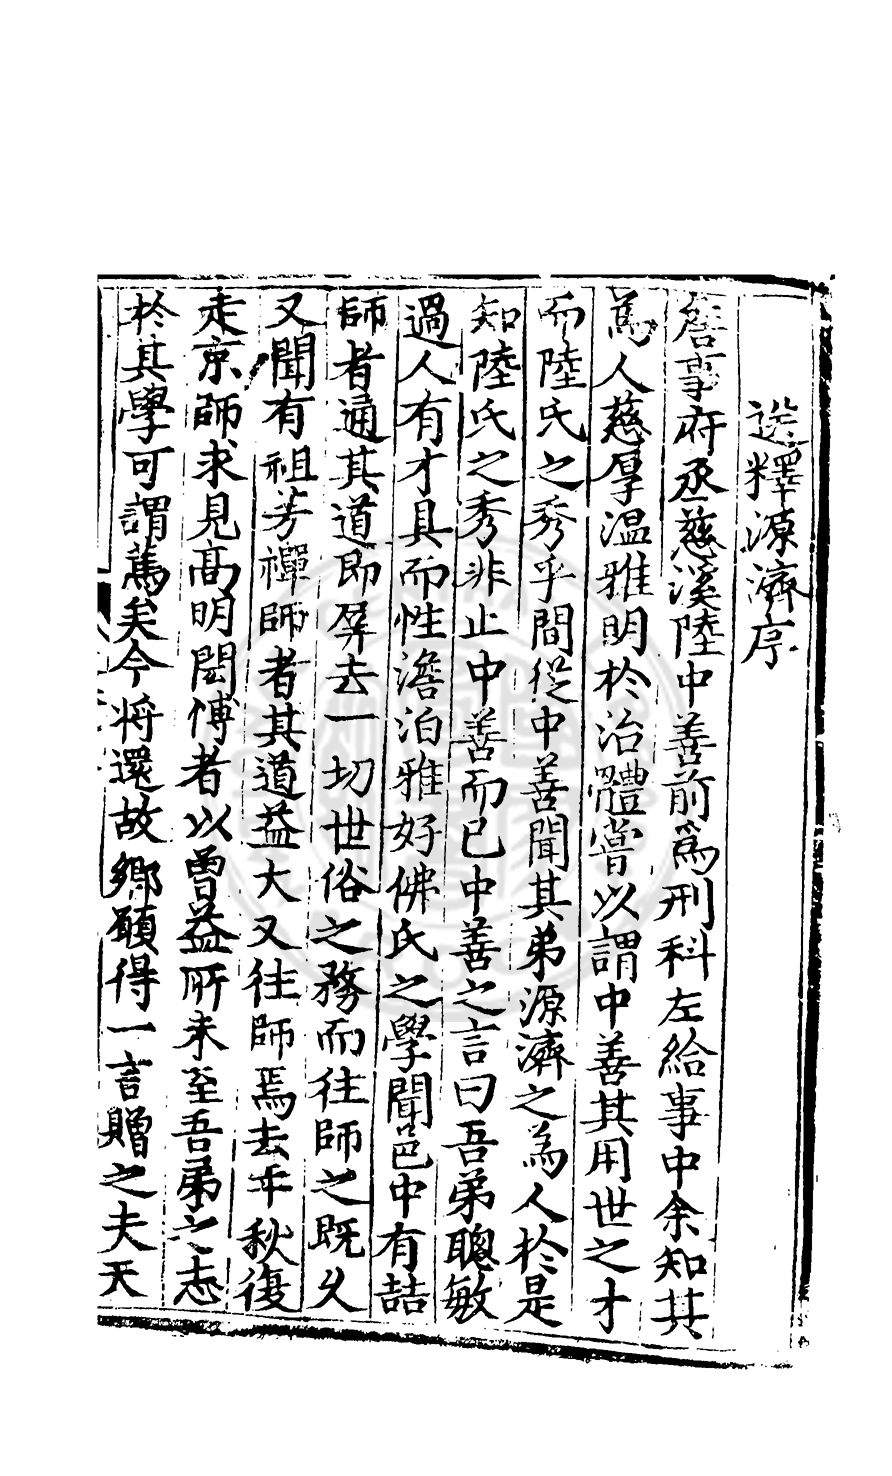 送釋源濟序
詹事府丞慈溪陸中善前為刑科左給事中余知其
為人慈厚温雅明於治體嘗以謂中善其用世之才
而陸氏之秀乎間從中善聞其弟源濟之為人於是
知陸氏之秀非止中善而已中善之言曰吾弟聰敏
過人有才具而性澹泊雅好佛氏之學聞邑中有喆
師者通其道即屏去一切世俗之務而往師之既乆
又聞有祖芳禪師者其道益大又往師焉去年秋復
走京師求見髙明閎博者以曾益所未至吾弟之志
於其學可謂篤矣今将還故鄉願得一言贈之夫天